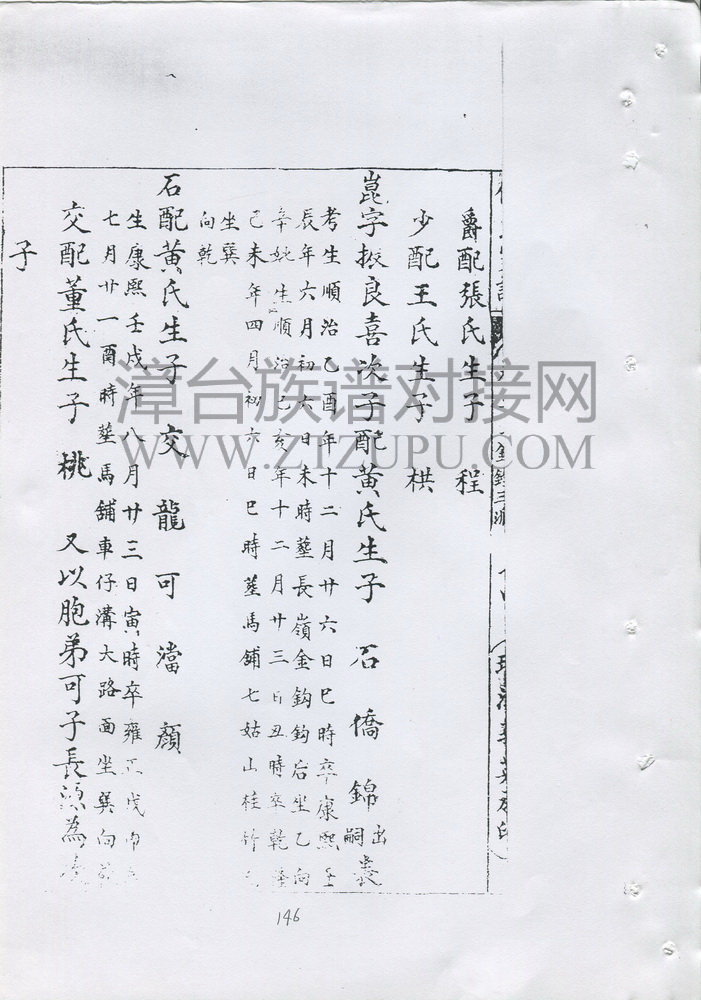 爵配張氏生子 程
少配王氏生子 栱
崑字振良喜次子配黄氏生子 石 僑 錦出嗣
考生順治乙酉年十二月廿六日巳時卒康熙壬
辰年六月初六日未時塟長嶺金鈎鈎后坐乙向
辛妣生順治己亥年十二月廿三日丑時卒乾隆
己未年四月初六日巳時塟馬鋪七姑山桂竹
坐巽
向乾
石配黄氏生子 交 龍 可 澢 顏
生康熙壬戌年八月廿三日寅時卒雍正戊申
七月廿一酉時塟馬鋪車仔溝大路面坐巽向
交配董氏生子 桃 又以胞弟可子長源為
子
漳台族谱对接网
WWW.ZTZUPU.COM
146